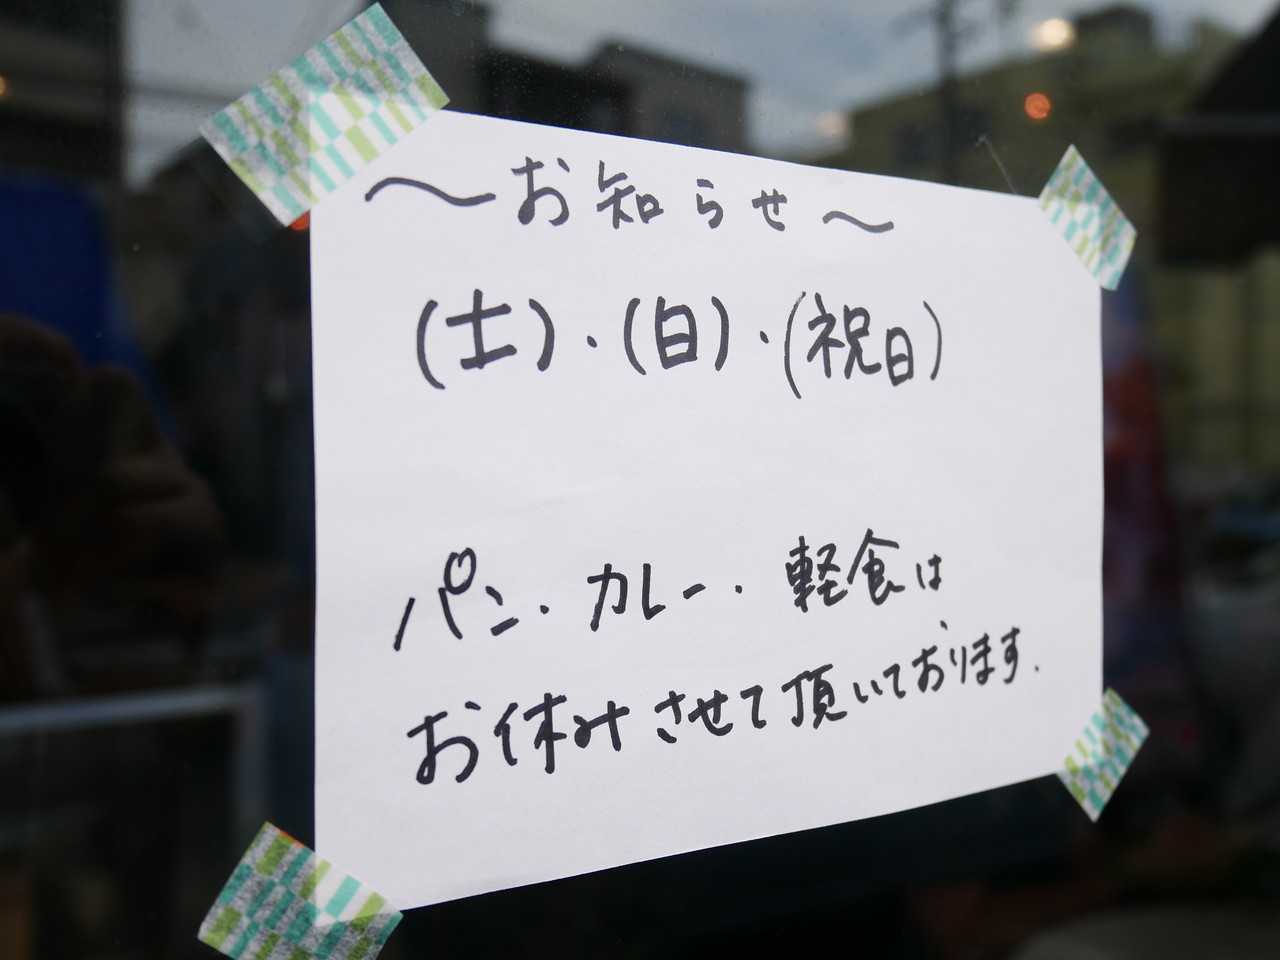 〜お知らせ〜
(土)・(日)・(祝日)
パン・カレー・軽食は
お休みさせて頂いております.